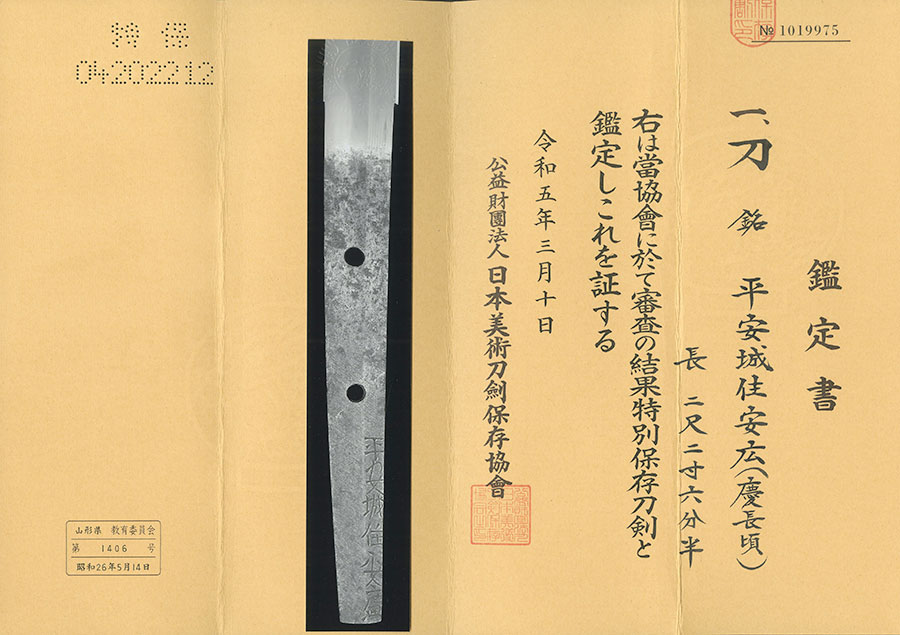 № 1019975
鑑定書
一、刀 銘 平安城住安広(慶長頃)
長 二尺二寸六分半
右は當協會に於て審査の結果特別保存刀剣と
鑑定しこれを証する
令和五年三月十日
公益財團法人 日本美術刀劍保存協會
平安城住安広
特保
04202212
山形県 教育委員会
第 1406 号
昭和26年5月14日